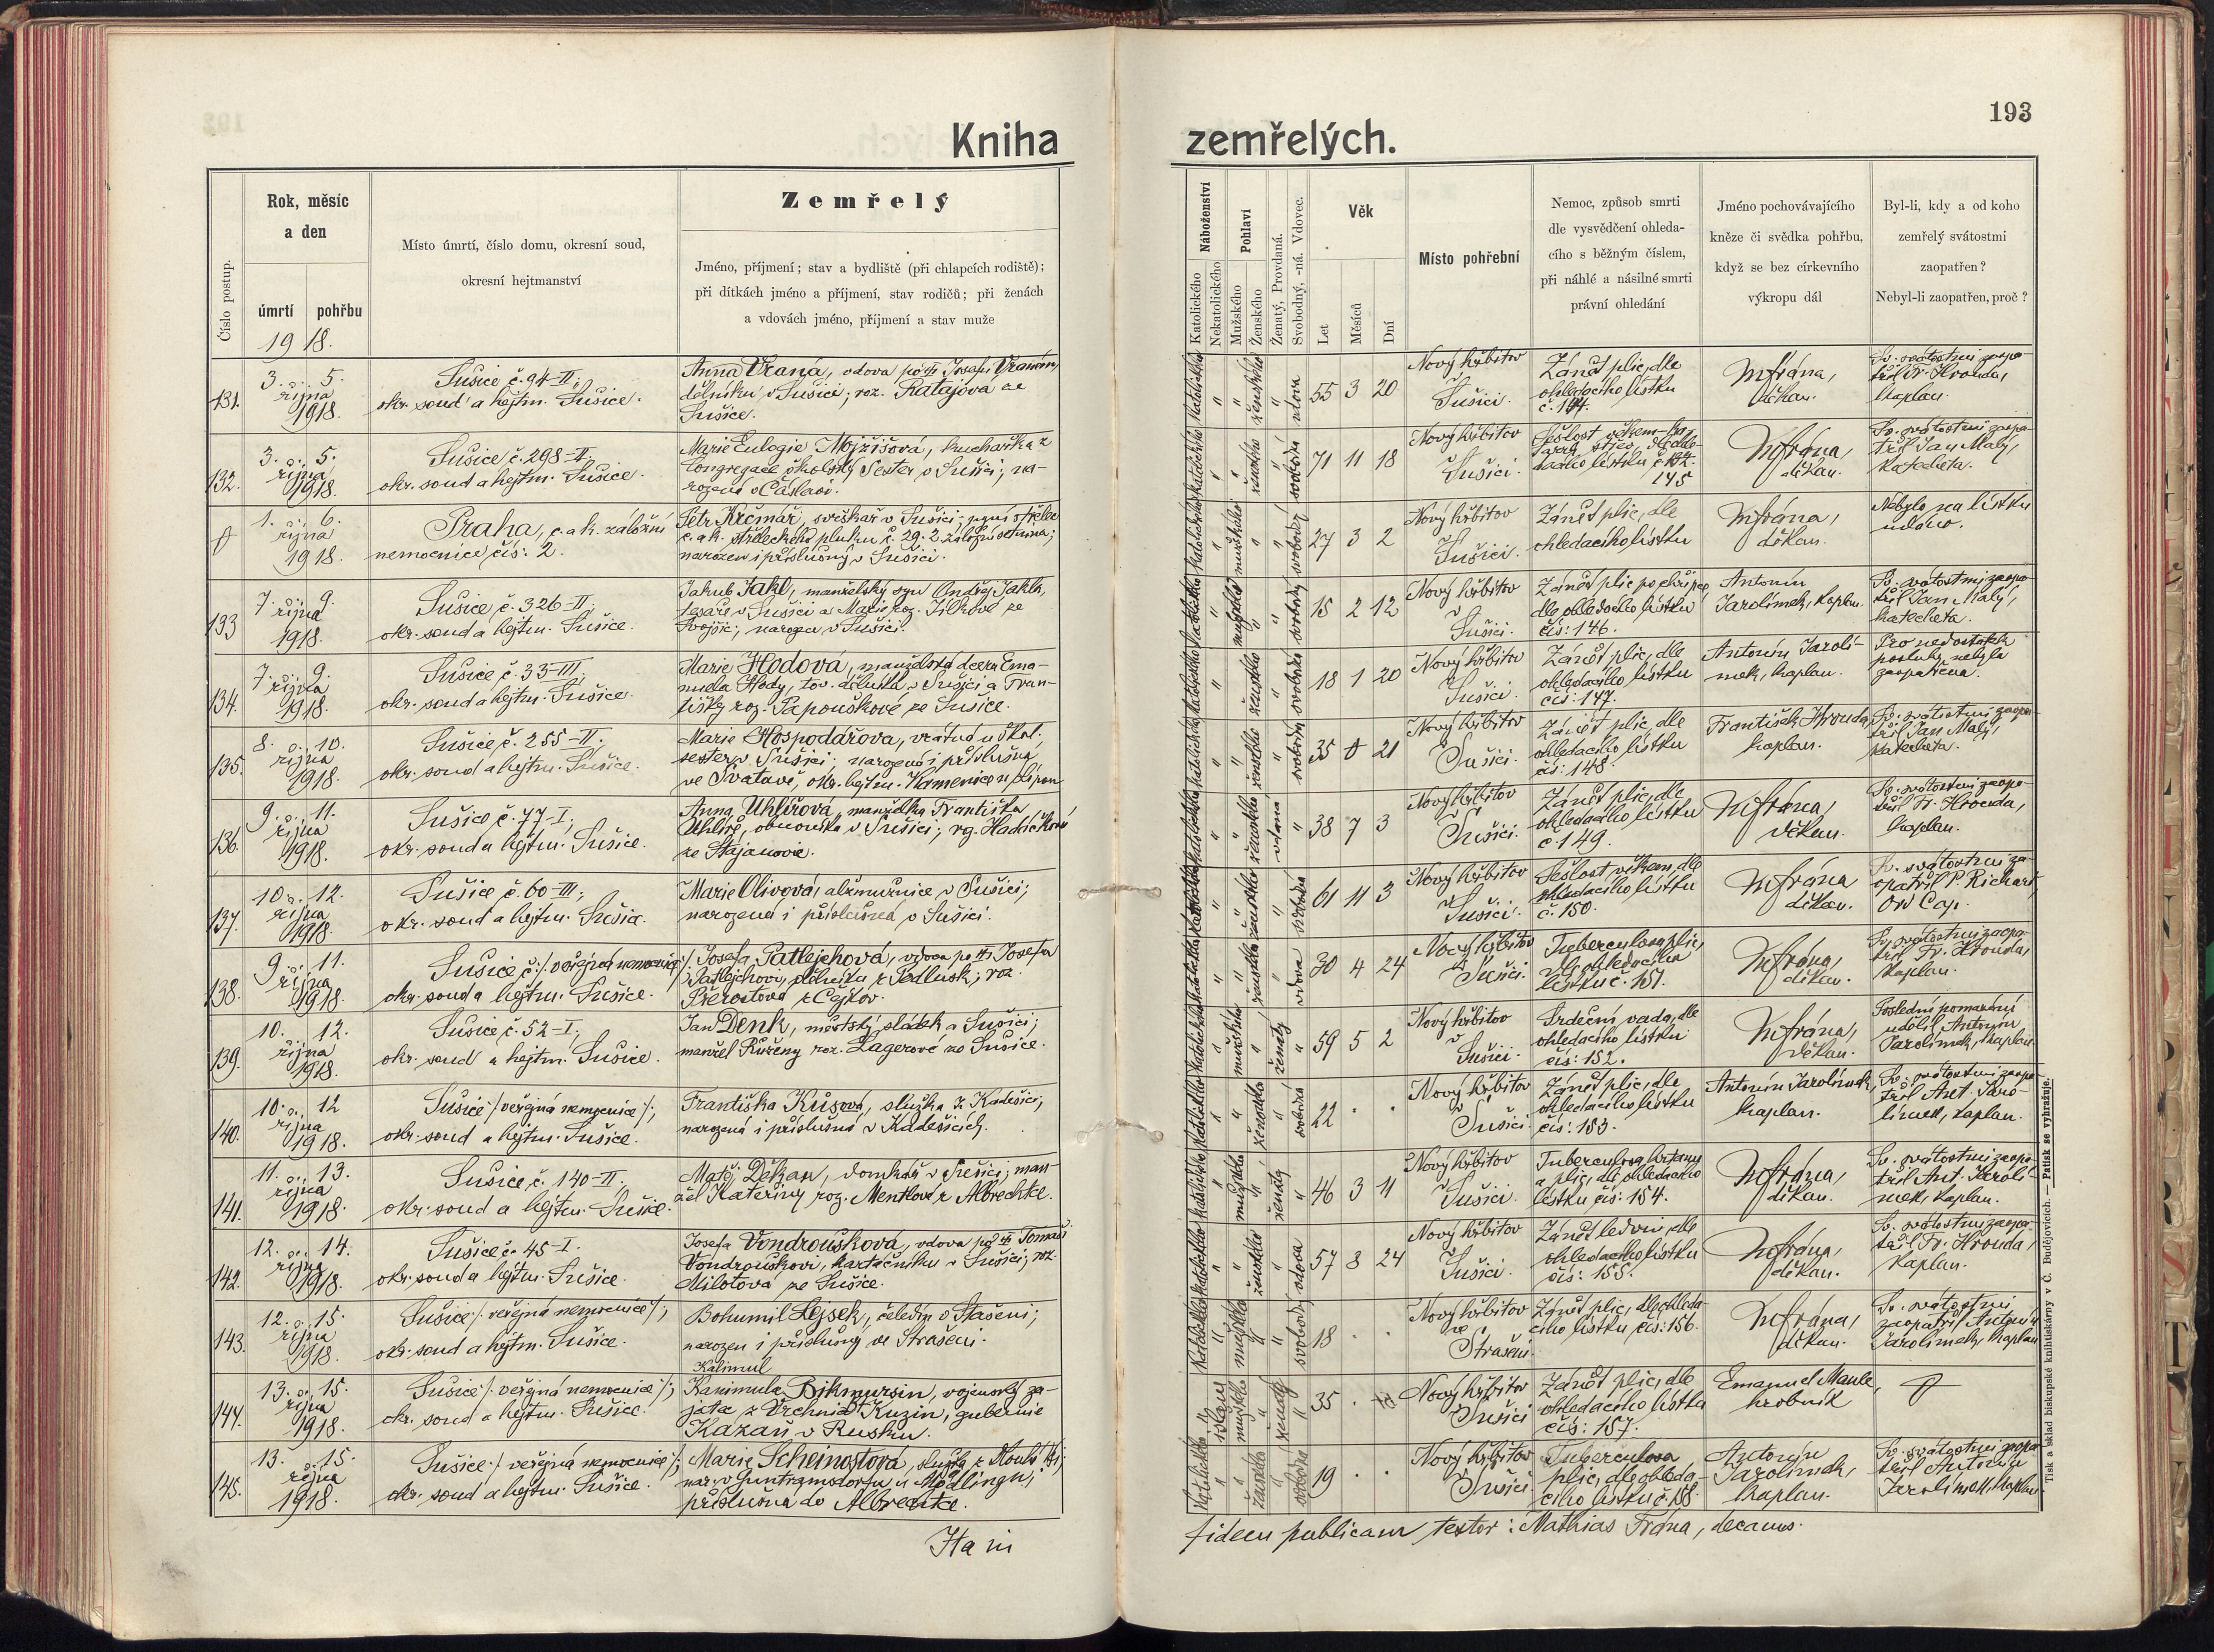 193
Kniha zemřelých.
Číslo postup.
Rok, měsíc
a den
úmrtí pohřbu
1918.
Místo úmrtí, číslo domu, okresní soud,
okresní hejtmanství
Zemřelý
Jméno, příjmení; stav a bydliště (při chlapcích rodiště);
při dítkách jméno a příjmení, stav rodičů; při ženách
a vdovách jméno, příjmení a stav muže
Náboženství
Katolického
Nekatolického
Pohlaví
Mužského
Ženského
Ženatý, Provdaná.
Svobodný, -ná. Vdovec.
Věk
Let
Měsíců
Dní
Místo pohřební
Nemoc, způsob smrti
dle vysvědčení ohleda-
cího s běžným číslem,
při náhlé a násilné smrti
právní ohledání
Jméno pochovávajícího
kněze či svědka pohřbu,
když se bez církevního
výkropu dál
Byl-li, kdy a od koho
zemřelý svátostmi
zaopatřen?
Nebyl-li zaopatřen, proč?
131.
3. 5.
října
1918.
Sušice č. 94-II;
okr. soud a hejtm. Sušice.
Anna Vraná, vdova po Josefu Vranovi,
dělníku v Sušici; roz. Ratajová ze
Sušice.
katolického
ženského
vdova
55 3 20
Nový hřbitov
v
Sušici.
Zánět plic, dle
ohledacího lístku
č. 144.
M. Frána,
děkan.
Sv. svátostmi zaopa-
třil Fr. Hrouda,
kaplan.
132.
3. 5.
října
1918.
Sušice č. 298-II;
okr. soud a hejtm. Sušice.
Marie Eulogie Mojžišová, kuchařka z
Congregace školských Sester v Sušici; na-
rozená v Čáslavi.
katolického
ženského
svobodná
71 11 18
Nový hřbitov
v
Sušici.
Sešlost věkem,
dle ohle-
dacího lístku č.
145
M. Frána,
děkan.
Sv. svátostmi zaopa-
třil Jan Malý,
katecheta.
1. 6.
října
1918.
Praha, c. a k. záložní
nemocnice čís. 2.
Petr Krčmář, svíškař v Sušici; nyní střelec
c. a k. střeleckého pluku č. 29. 2. záložní setnina;
narozen i příslušný v Sušici.
katolického
mužského
svobodný
27 3 2
Nový hřbitov
v
Sušici.
Zánět plic, dle
ohledacího lístku
M. Frána,
děkan.
Nebylo na lístku
udáno.
133
7. 9.
října
1918.
Sušice č. 326-II;
okr. soud a hejtm. Sušice.
Jakub Jakl, manželský syn Ondřej Jakla,
tesaře v Sušici a Marie roz. Jílkové ze
Svojšic; narozen v Sušici.
katolického
mužského
svobodný
15 2 12
Nový hřbitov
v
Sušici.
Zánět plic po chřipce
dle ohledacího lístku
čís: 146.
Antonín
Jarolímek, kaplan.
Sv. svátostmi zaopa-
třil Jan Malý,
katecheta.
134.
7. 9.
října
1918.
Sušice č. 33-III;
okr. soud a hejtm. Sušice.
Marie Hodová, manželská dcera Ema-
nuela Hody, tov. dělníka v Sušici a Fran-
tišky roz. Papouškové ze Sušice.
katolického
ženského
svobodná
18 1 20
Nový hřbitov
v
Sušici.
Zánět plic, dle
ohledacího lístku
čís: 147.
Antonín Jarolí-
mek, kaplan.
Pro nedostatek
posluhy nebyla
zaopatřena.
135.
8. 10.
října
1918.
Sušice č. 255-II.
okr. soud a hejtm. Sušice.
Marie Hospodářova, vrátná u škol.
sester v Sušici; narozená i příslušná
ve Svatavě, okr. hejtm. Kamenice n/Lipou
katolického
ženského
svobodná
35 0 21
Nový hřbitov
v
Sušici.
Zánět plic, dle
ohledacího lístku
čís: 148.
František Hrouda,
kaplan.
Sv. svátostmi zaopa-
třil Jan Malý,
katecheta.
136.
9. 11.
října
1918.
Sušice č. 77-I;
okr. soud a hejtm. Sušice.
Anna Uhlířová, manželka Františka
Uhlíře, obuvníka v Sušici; rz. Hadáčková
ze Stajanovic.
katolického
ženského
vdaná
38 7 3
Nový hřbitov
v
Sušici.
Zánět plic, dle
ohledacího lístku
č. 149.
M. Frána,
děkan.
Sv. svátostmi zaopa-
třil Fr. Hrouda,
kaplan.
137.
10. 12.
října
1918.
Sušice č. 60-III;
okr. soud a hejtm. Sušice.
Marie Olivová, almužnice v Sušici;
narozená i příslušná v Sušici.
ženského
svobodná
61 11 3
Nový hřbitov
v
Sušici.
Sešlost věkem, dle
ohledacího lístku
č. 150.
M. Frána
děkan.
Sv. svátostmi za-
opatřil P. Richard,
Ord Cap.
138.
9. 11.
října
1918.
Sušice č. /: veřejná nemocnice :/
okr. soud a hejtm. Sušice.
Josefa Patlejchová, vdova po Josefu
Patlejchovi, dělníku z Podlusk; roz.
Přerostová z Cejkov.
katolického
ženského
vdova
30 4 24
Nový hřbitov
v
Sušici.
Tuberculosa plic,
dle ohledacího
lístku č. 151.
M. Frána,
děkan.
Sv. svátostmi zaopa-
třil Fr. Hrouda,
kaplan.
139.
10. 12.
října
1918.
Sušice č. 52-I;
okr. soud a hejtm. Sušice.
Jan Denk, městský sládek v Sušici;
manžel Růženy roz. Lagerové ze Sušice.
katolického
mužského
ženatý
59 5 2
Nový hřbitov
v
Sušici.
Srdeční vada, dle
ohledacího lístku
čís: 152.
M. Frána,
děkan.
Poslední pomazání
udělil Antonín
Jarolímek, kaplan.
140.
10. 12
října
1918.
Sušice /: veřejná nemocnice :/;
okr. soud a hejtm. Sušice.
Františka Kůsová, služka z Kadešic;
narozená i příslušná v Kadešicích.
katolického
ženského
svobodná
22 . .
Nový hřbitov
v
Sušici.
Zánět plic, dle
ohledacího lístku
čís: 153.
Antonín Jarolímek,
kaplan.
Sv. svátostmi zaopa-
třil Ant. Jaro-
límek, kaplan.
141.
11. 13.
října
1918.
Sušice č. 140-II;
okr. soud a hejtm. Sušice.
Matěj Děkan, domkář v Sušici; man-
žel Kateřiny roz. Mentlové z Albrechtic.
katolického
mužského
ženatý
46 3 11
Nový hřbitov
v
Sušici.
Tuberculosa hrtanu
a plic, dle ohledacího
lístku čís: 154.
M. Frána,
děkan.
Sv. svátostmi zaopa-
třil Ant. Jarolí-
mek, kaplan.
142.
12. 14.
října
1918.
Sušice č. 45-I.
okr. soud a hejtm. Sušice.
Josefa Vondroušková, vdova po Tomáši
Vondrouškovi, kartáčníku v Sušici; roz.
Milotová ze Sušice.
katolického
ženského
vdova
57 8 24
Nový hřbitov
v
Sušici.
Zánět ledvin, dle
ohledacího lístku
čís: 155.
M. Frána,
děkan.
Sv. svátostmi zaopa-
třil Fr. Hrouda,
kaplan.
143.
12. 15.
října
1918.
Sušice /: veřejná nemocnice :/;
okr. soud a hejtm. Sušice.
Bohumil Lejsek, čeledín v Stašeni;
narozen i příslušný ve Strašeni.
katolického
mužského
svobodný
18 . .
Nový hřbitov
ve
Strašeni.
Zánět plic, dle ohleda-
cího lístku čís: 156.
M. Frána,
děkan.
Sv. svátostmi
zaopatřil Antonín
Jarolímek, kaplan
144.
13. 15.
října
1918.
Sušice /: veřejná nemocnice :/;
okr. soud a hejtm. Sušice.
Kalimul
Kanimula Bikmursin, vojenský za-
jatec z Vrchnia Kuzin, gubernie
Kazaň v Rusku.
islam
mužského
ženatý
35 .
Nový hřbitov
v
Sušici
Zánět plic, dle
ohledacího lístku
čís: 157.
Emanuel Maule,
hrobník
145.
13. 15.
října
1918.
Sušice /: veřejná nemocnice :/;
okr. soud a hejtm. Sušice.
Marie Scheinostová, služka z
nar. v Guntramsdorfu u Mödlingu;
příslušná do Albrechtic.
katolického
ženského
svobodná
19 . .
Nový hřbitov
v
Sušici.
Tuberculosa
plic, dle ohleda-
cího lístku č. 158.
Antonín
Jarolímek,
kaplan.
Sv. svátostmi zaopa-
třil Antonín
Jarolímek, kaplan
fidem publicam testor: Mathias Frána, decanus.
Tisk a sklad biskupské knihtiskárny v Č. Budějovicích. — Patisk se vyhražuje.